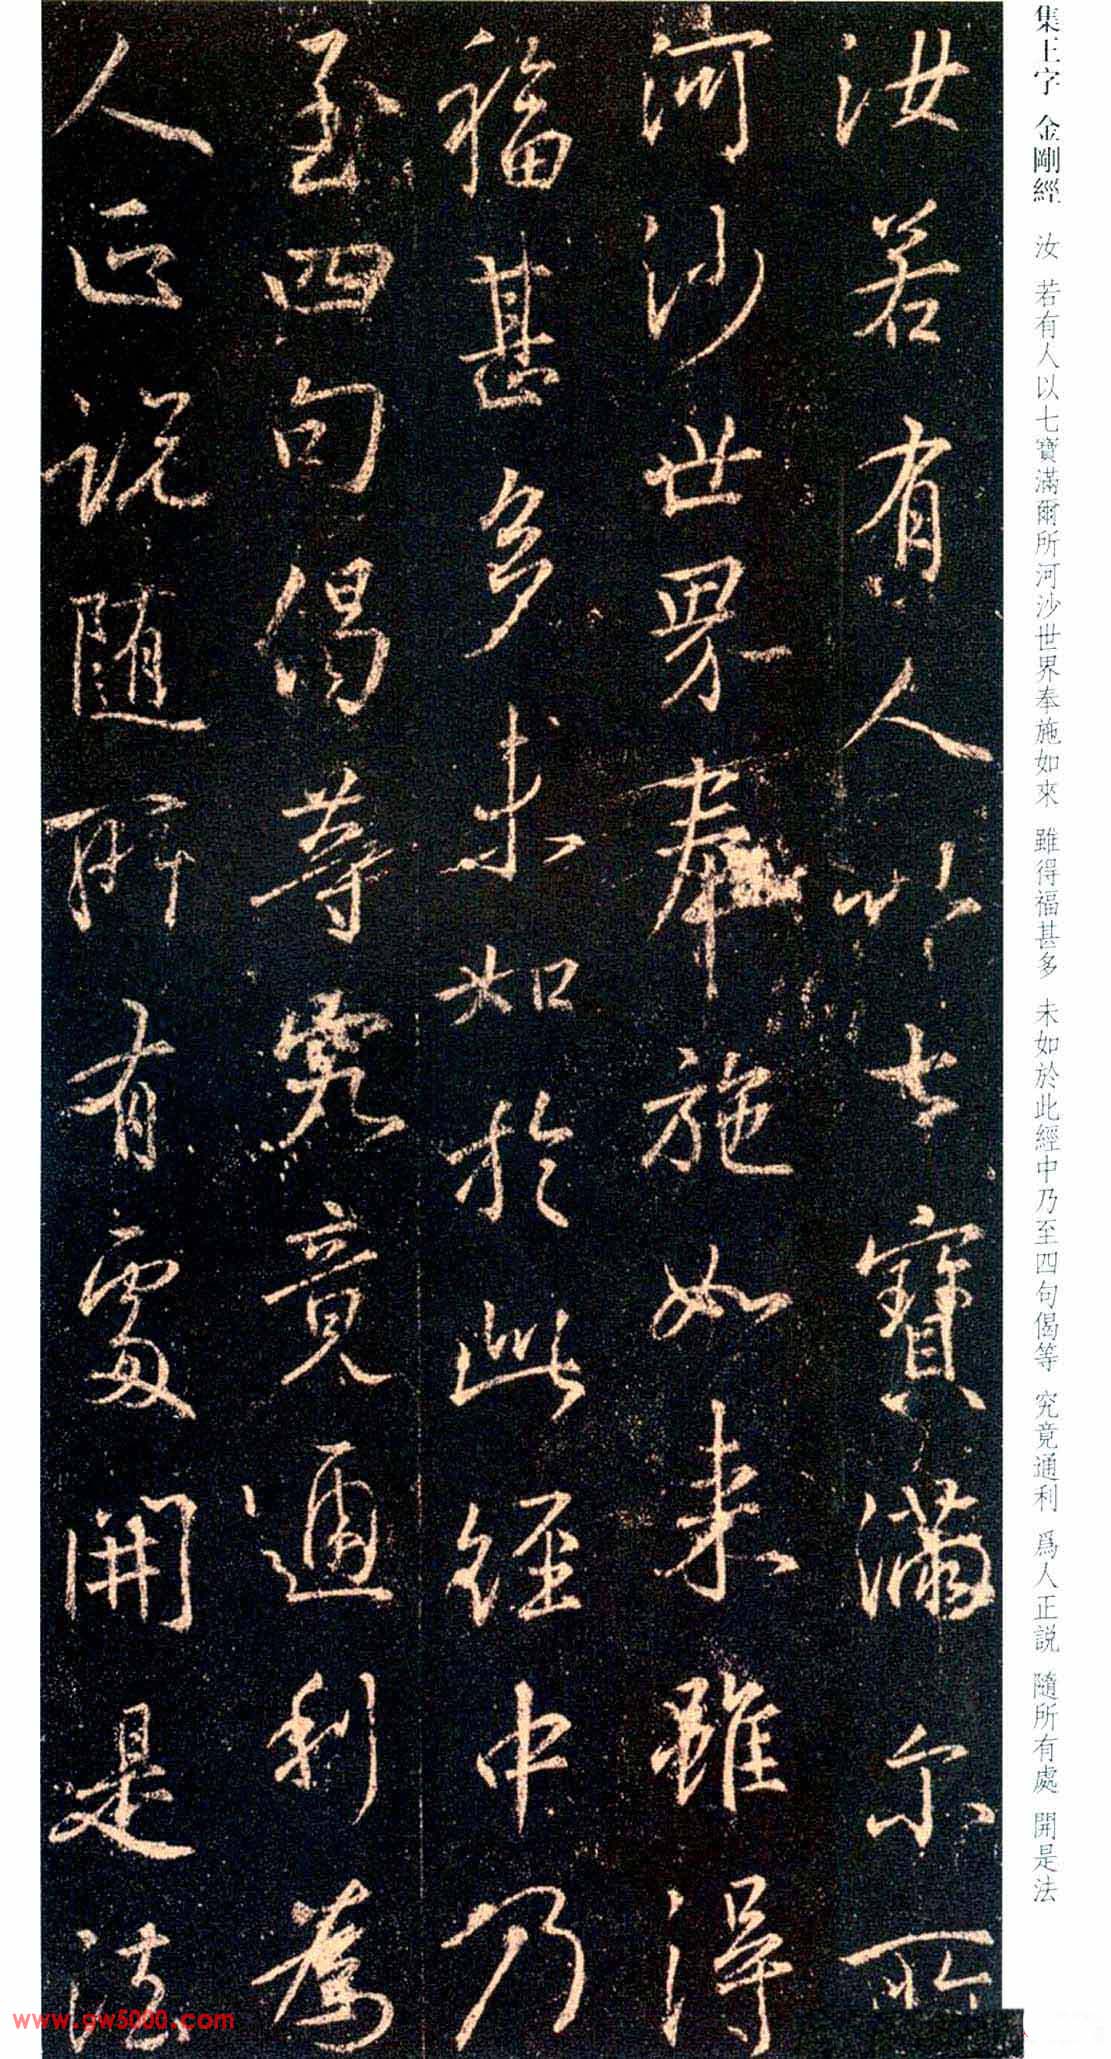 集王字 金剛經 汝 若有人以七寶滿爾所河沙世界奉施如來 雖得福甚多 未如於此經中乃至四句偈等 究竟通利 爲人正説 隨所有處 開是法
汝若有人以七寶滿尔所
河沙世界奉施如来雖得
福甚多未如於此經中乃
至四句偈等究竟通利為
人正説随所有處開是法
www.gw5000.com